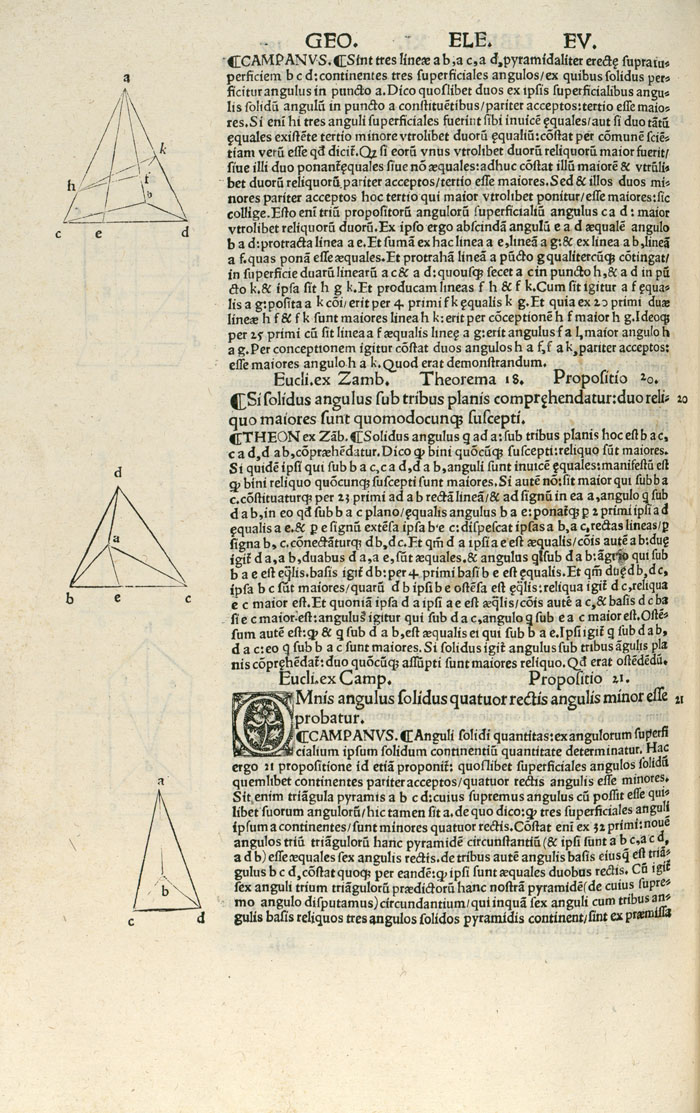 GEO. ELE. EV.
¶CAMPANVS. ¶Sint tres lineæ a b, a c, a d, pyramidaliter erectę supra su-
perficiem b c d: continentes tres superficiales angulos/ex quibus solidus per-
ficitur angulus in puncto a. Dico quoslibet duos ex ipsis superficialibus angu-
lis solidū angulū in puncto a constituētibus/pariter acceptos: tertio esse maio-
res. Si enī hi tres anguli superficiales fuerint sibi inuicē ęquales/aut si duo tātū
ęquales existēte tertio minore vtrolibet duorū ęqualiū: cōstat per cōmunē sciē-
tiam verū esse qd dicit̄. Qz si eorū vnus vtrolibet duorū reliquorū maior fuerit/
siue illi duo ponant̄ ęquales siue nō æquales: adhuc cōstat illū maiorē & vtrūli-
bet duorū reliquorū pariter acceptos/tertio esse maiores. Sed & illos duos mi-
nores pariter acceptos hoc tertio qui maior vtrolibet ponitur/esse maiores: sic
collige. Esto enī triū propositorū angulorū superficialiū angulus c a d: maior
vtrolibet reliquorū duorū. Ex ipso ergo abscindā angulū e a d æqualē angulo
b a d: protracta linea a e. Et sumā ex hac linea a e, lineā a g: & ex linea a b, lineā
a f. quas ponā esse æquales. Et protrahā lineā a pūcto g qualitercūqꝫ cōtingat/
in superficie duarū linearū a c & a d: quousqꝫ secet a c in puncto h, & a d in pū
cto k. & ipsa sit h g k. Et producam lineas f h & f k. Cum sit igitur a f ęqua-
lis a g: posita a k cōi/erit per 4. primi f k ęqualis k g. Et quia ex 20 primi duæ
lineæ h f & f k sunt maiores linea h k: erit per cōceptionē h f maior h g. Ideoqꝫ
per 25 primi cū sit linea a f æqualis lineę a g: erit angulus f a l, maior angulo h
a g. Per conceptionem igitur cōstat duos angulos h a f, f a k, pariter acceptos:
esse maiores angulo h a k. Quod erat demonstrandum.
Eucli. ex Zamb. Theorema 18. Propositio 20.
¶Si solidus angulus sub tribus planis compręhendatur: duo reli- 20
quo maiores sunt quomodocunqꝫ suscepti.
¶THEON ex Zāb. ¶Solidus angulus q ad a: sub tribus planis hoc est b a c,
c a d, d a b, cōpræhēdatur. Dico qꝫ bini quōcūqꝫ suscepti: reliquo sūt maiores.
Si quidē ipsi qui sub b a c, c a d, d a b, anguli sunt inuicē ęquales: manifestū est
qꝫ bini reliquo quōcunqꝫ suscepti sunt maiores. Si autē nō: sit maior qui sub b a
c. cōstituaturqꝫ per 23 primi ad a b rectā lineā/& ad signū in ea a, angulo q sub
d a b, in eo qd sub b a c plano/ equalis angulus b a e: ponat̄qꝫ p 2 primi ipsi a d
ęqualis a e. & p e signū extēsa ipsa b e c: dispescat ipsas a b, a c, rectas lineas/p
signa b, c. cōnectāturqꝫ d b, d c. Et qm̄ d a ipsi a e est æqualis/cōis autē a b: duę
igit̄ d a, a b, duabus d a, a e, sūt æquales. & angulus q sub d a b: āgulo qui sub
b a e est ęq̄lis. basis igit̄ d b: per 4 primi basi b e est ęqualis. Et qm̄ duę d b, d c,
ipsa b c sūt maiores/quarū d b ipsi b e ostēsa est ęq̄lis: reliqua igit̄ d c, reliqua
e c maior est. Et quoniā ipsa d a ipsi a e est æq̄lis/cōis autē a c, & basis d c ba
si e c maior est: angulus igitur qui sub d a c, angulo q sub e a c maior est. Ostē-
sum autē est: qꝫ & q sub d a b, est æqualis ei qui sub b a e. Ipsi igit̄ q sub d a b,
d a c: eo q sub b a c sunt maiores. Si solidus igit̄ angulus sub tribus āgulis pla
nis cōpręhēdat̄: duo quōcūqꝫ assūpti sunt maiores reliquo. Qd erat ostēdēdū.
Eucli. ex Camp. Propositio 21.
OMnis angulus solidus quatuor rectis angulis minor esse 21
probatur.
¶CAMPANVS. ¶Anguli solidi quantitas: ex angulorum superfi
cialium ipsum solidum continentiū quantitate determinatur. Hac
ergo 21 propositione id etiā proponit̄: quoslibet superficiales angulos solidū
quemlibet continentes pariter acceptos/quatuor rectis angulis esse minores.
Sit enim triāgula pyramis a b c d: cuius supremus angulus cū possit esse qui-
libet suorum angulorū/hic tamen sit a. de quo dico: qꝫ tres superficiales anguli
ipsum a continentes/sunt minores quatuor rectis. Cōstat enī ex 32 primi: nouē
angulos triū triāgulorū hanc pyramidē circunstantiū (& ipsi sunt a b c, a c d,
a d b) esse æquales sex angulis rectis. de tribus autē angulis basis eiusq̄ est triā-
gulus b c d, cōstat quoqꝫ per eandē: qꝫ ipsi sunt æquales duobus rectis. Cū igit̄
sex anguli trium triāgulorū prædictorū hanc nostrā pyramidē (de cuius supre-
mo angulo disputamus) circundantium/qui inquā sex anguli cum tribus an-
gulis basis reliquos tres angulos solidos pyramidis continent/sint ex præmissa
a
k
h
f
b
c e d
d
a
b e c
a
b
c d